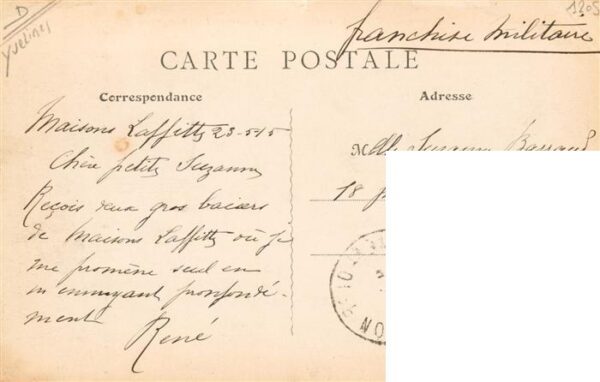 D
Yvelines
1205
franchise militaire
CARTE POSTALE
Correspondance
Adresse
Maisons Laffitte 23-5-15
Chère petite Suzanne
Reçois deux gros baisers
de Maisons Laffitte où je
me promène seul en
m'ennuyant pronfondé-
ment
René
Mlle Suzanne
18